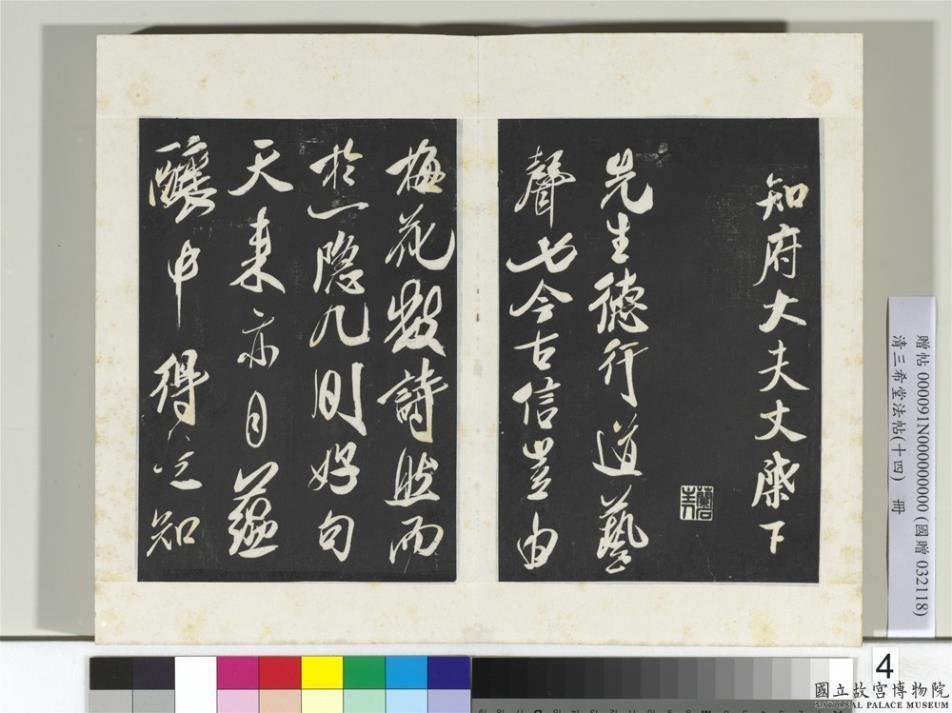 知府大夫丈棨下
先生德行道藝
聲七今古信豈由
梅花數詩然而
於一隱几則好句
天來亦目蘊
釀中得之知
贈帖 000091N000000000 (國贈 032118)
清三希堂法帖(十四) 冊
4
國立故宮博物院
NATIONAL PALACE MUSEUM